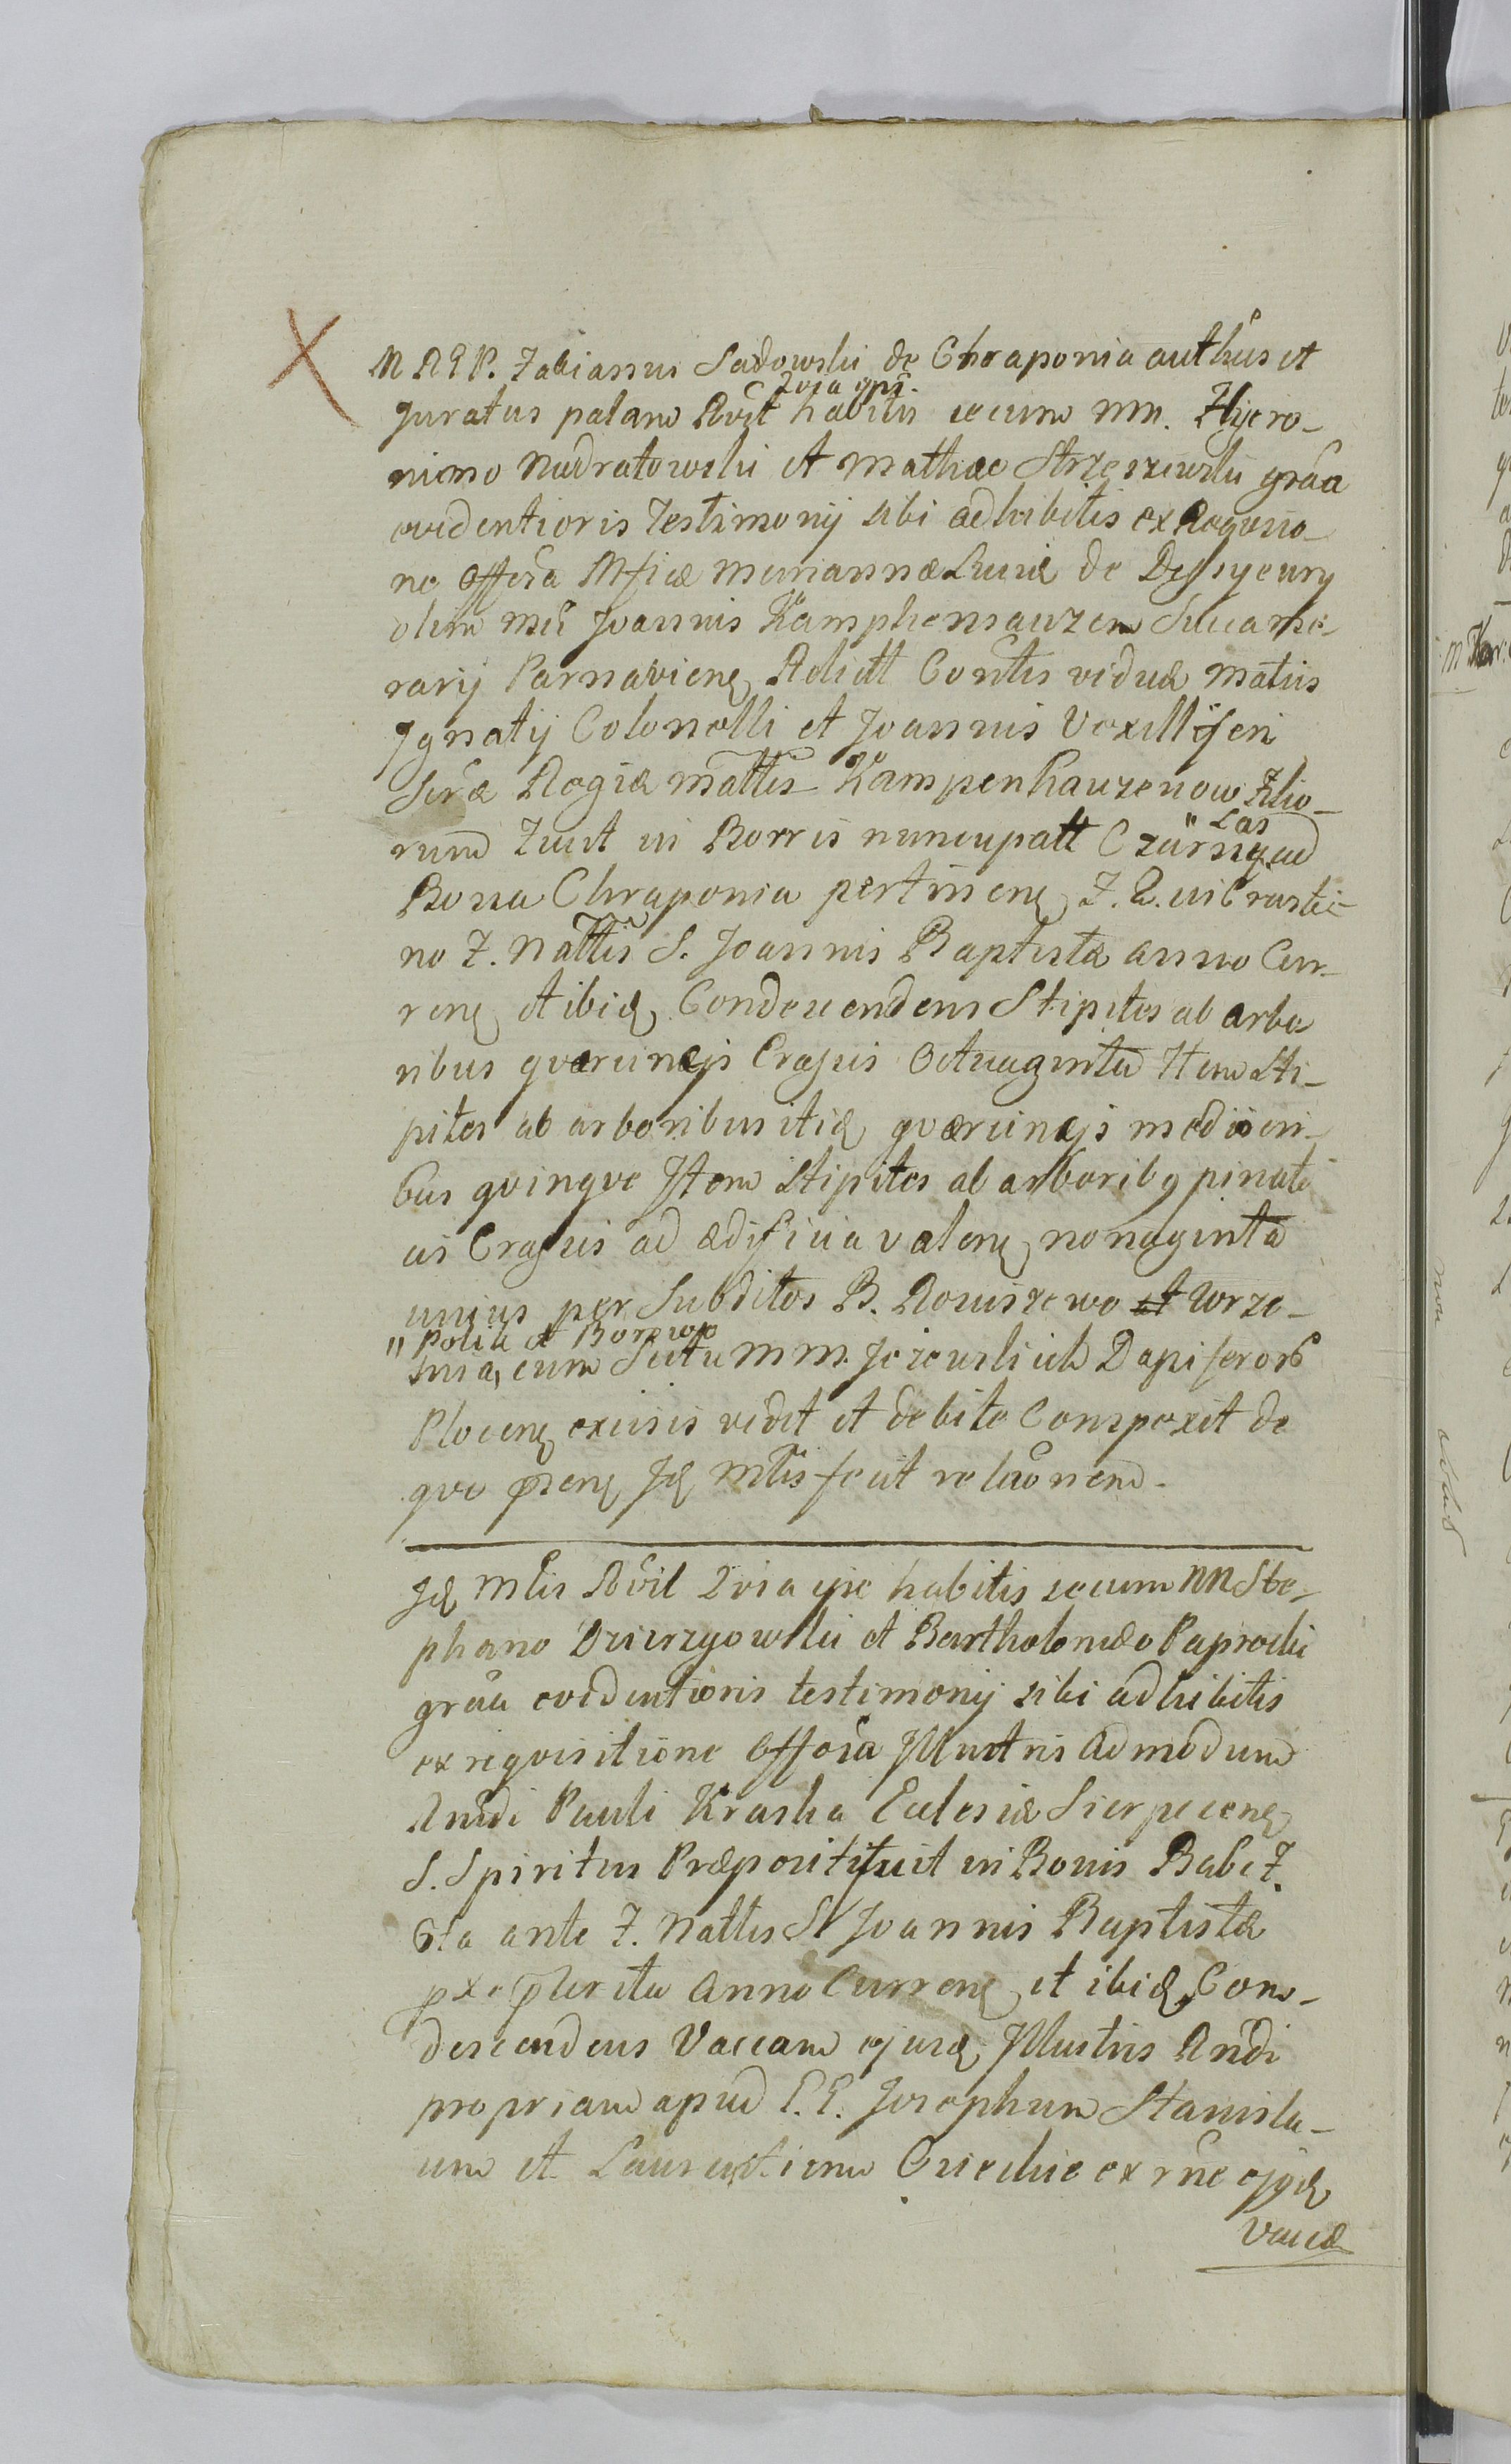 M R G P. Fabianus Sadowski de Chraponia authūs et
Juratus palam Rvit habitis secum mn. Hyero-
2ria gnī.
nimo Nadratowski et Mathæo Strzeszewski grāa
evidentioris Testimonij sibi adhibitis ex Requisio-
ne Offosa Mficæ Mariannæ Lucicæ de
olim mcī Joannis Kamphenhauzen Succame-
rarij Parnavienę Relictt Consortis viduæ Matris
Jgnatij Colonelli et Joannis Vexilliferi
Scræ Regiæ Mattis Kampenhauzenow Filio-
rum Fuit in Borris nuncupatt Czarny ad
" Las
Bona Chraponia pertinenę F. Q. in Crasti-
no F. Nattis S. Joannis Baptistæ anno Cur-
renę et ibidę Condescendens Stipites ab arbo
ribus qværcinejs Crassis Octuaginta Item Sti-
pites ab arboribus itidę qværcinejs mediocri-
bus qvinqve Item Stipites ab arboribq pinate
is Crassis ad ædificia valenę nonaginta
unius per Subditos B. Rosciszewo et Wrze-
" Polik et Borewo
snia, cum Scitu M m. Jezewskich Dapiferorб
Plocenę excisis vidit et debite Conspexit de
qvo præsenę Jdę Mtlis fecit relāonem.
Jdę Mtlis Rvit 2ria gnē habitis secum NN Ste-
phano Dzierzgowski et Bartholomæo Paprocki
grāa evidentioris testimonij sibi adhibitis
ex reqvisitione Offosa Jllustris Admodum
Rnndi Pauli Kraska Ecclesiæ Sierpecenę
S. Spiritus Præpositi fuit in Bonis Babe F.
6ta ante F. Nattis S Joannis Baptistæ
pxe pterita Anno Currenę et ibidę Con-
descendens Vaccam ejusdę Jllustris Rndi
propriam apud L. L. Josephum Stanisla-
um et Laurentium ex rne ejqdę
Vaccæ